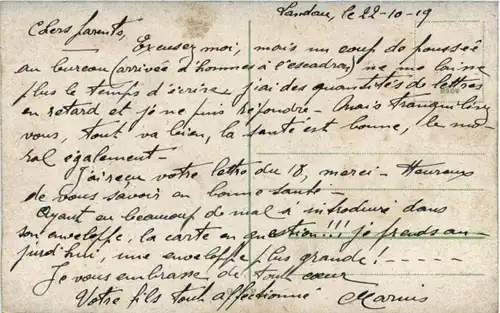 Landau, le 22-10-19
Chers parents,
Excusez moi, mais un coup de poussée
au bureau (arrivée d'hommes à l'escadron) ne me laisse
plus le temps d'écrire, j'ai des quantités de lettres
en retard et je ne puis répondre - Mais tranquilisez
vous, tout va bien, la santé est bonne, le mo-
ral également -
J'ai reçu votre lettre du 18, merci - Heureux
de vous savoir en bonne santé -
Ayant eu beaucoup de mal à introduire dans
son enveloppe, la carte en question!!! je prends au-
jourd'hui, une enveloppe plus grande! -----
Je vous embrasse de tout coeur
Votre fils tout affectionné Marius